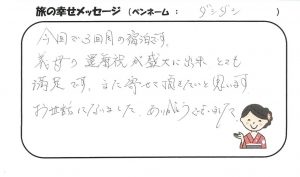 旅の幸せメッセージ（ペンネーム： ダンダン ）
今回で3回目の宿泊です。
義母の 祝が盛大に出来 とても
満足です。また寄せて頂きたいと思います
お世話になりました。ありがとうございました。